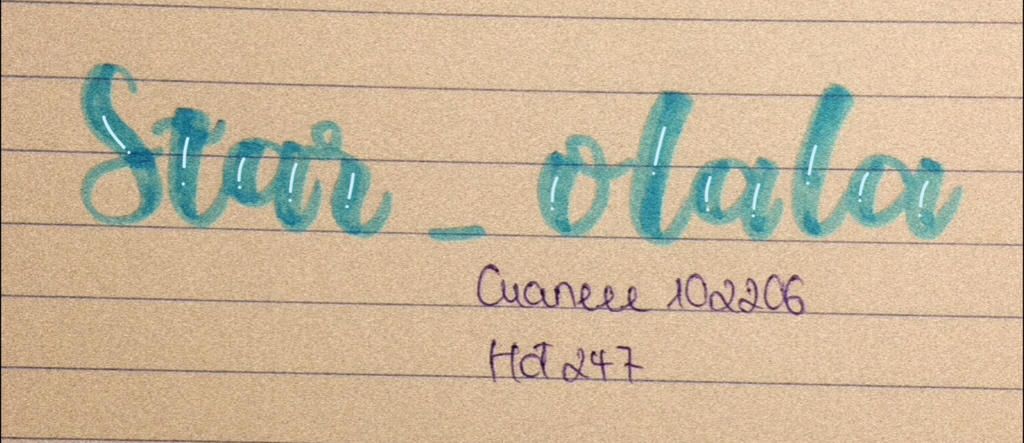 Star_olala
Cuaneee 102206
Hđt 247